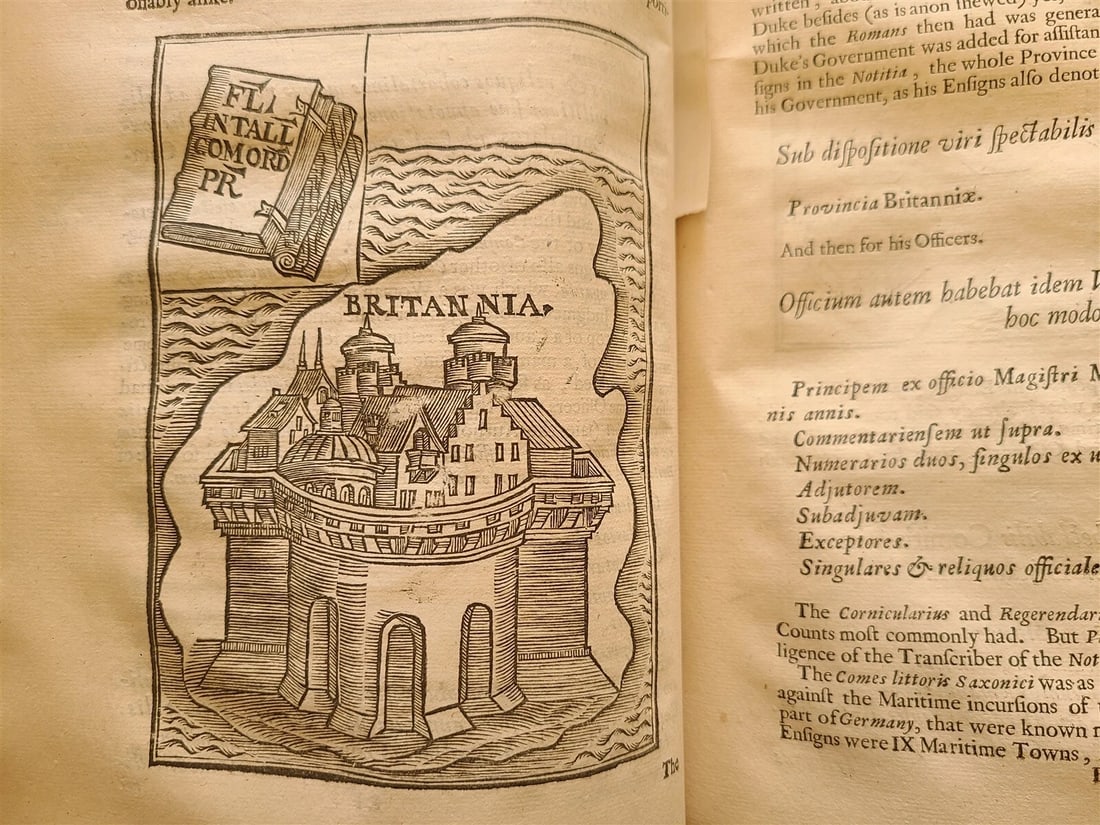 onably alike.
FL
INTALL
COMORD
PR
BRITANNIA.
The
Duke beſides (as is anon ſhewed)
which the Romans then had was genera
Duke's Government was added for aſſiſtan
ſigns in the Notitia, the whole Province
his Government, as his Enſigns alſo denot
Sub diſpoſitione viri ſpectabilis
Provincia Britanniæ.
And then for his Officers.
Officium autem habebat idem
hoc modo
Principem ex officio Magiſtri M
nis annis.
Commentarienſem ut ſupra.
Numerarios duos, ſingulos ex u
Adjutorem.
Subadjuvam.
Exceptores.
Singulares & reliquos officiale
The Cornicularius and Regerendar
Counts moſt commonly had. But P
ligence of the Tranſcriber of the Not
The Comes littoris Saxonici was as
againſt the Maritime incurſions of
part of Germany, that were known
Enſigns were IX Maritime Towns,